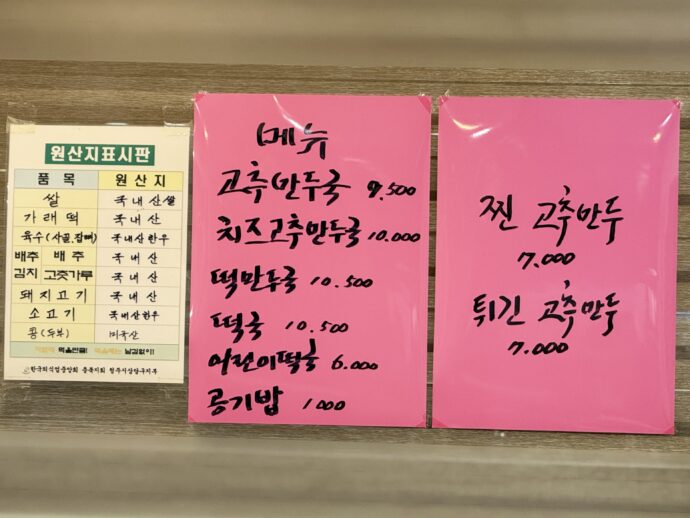 원산지표시판
품 목 원 산 지
쌀 국내산쌀
가래떡 국내산
육수(사골,잡뼈) 국내산한우
배추 배추 국내산
김치 고춧가루 국내산
돼지고기 국내산
소고기 국내산한우
콩(두부) 미국산
먹을만큼! 남김없이!
한국외식업중앙회 충북지회 청주시상당구지부
메뉴
고추만두국 9,500
치즈고추만두국 10.000
떡만두국 10.500
떡국 10.500
어린이떡국 6.000
공기밥 1000
찐 고추만두
7.000
튀긴 고추만두
7.000